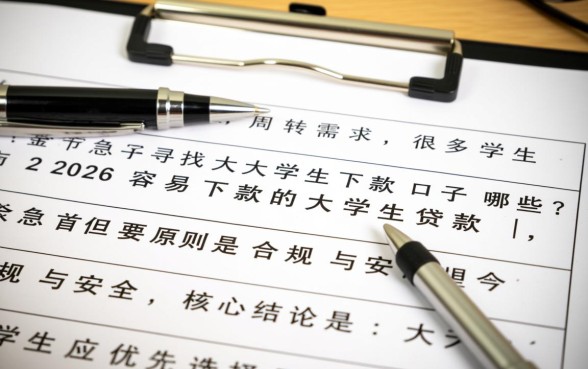 ，周转需求，很多学生
急子寻找大大学生下款 口子 哪些？
2 2026 容易下款的大学生贷款 |，
急首但要原则是合规 与安
规 与安全，核心结论是：大
学生应优先选择